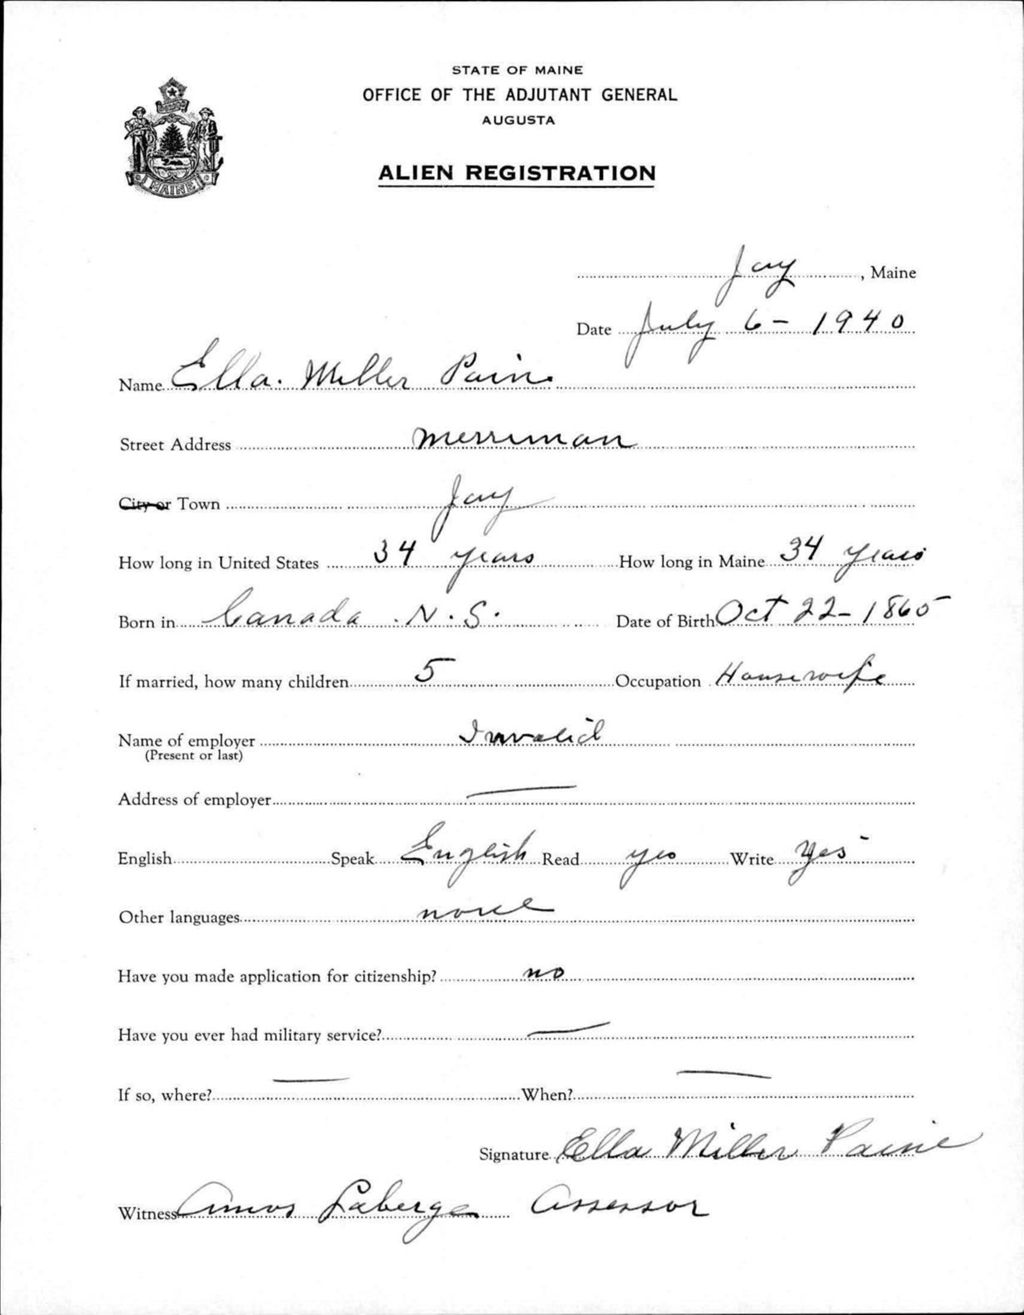 STATE OF MAINE
OFFICE OF THE ADJUTANT GENERAL
AUGUSTA
MAINE
ALIEN REGISTRATION
Jay, Maine
Date July 6 - 1940
Name Ella. Miller Paine
Street Address Merriman
City or Town Jay
How long in United States 34 years How long in Maine 34 years
Born in Canada . N. S. Date of Birth Oct 22 - 1865
If married, how many children 5 Occupation Housewife
Name of employer Invalid
(Present or last)
Address of employer —
English Speak English Read yes Write yes
Other languages none
Have you made application for citizenship? no
Have you ever had military service? —
If so, where? — When? —
Signature Ella Miller Paine
Witness Amos Laberge Assessor